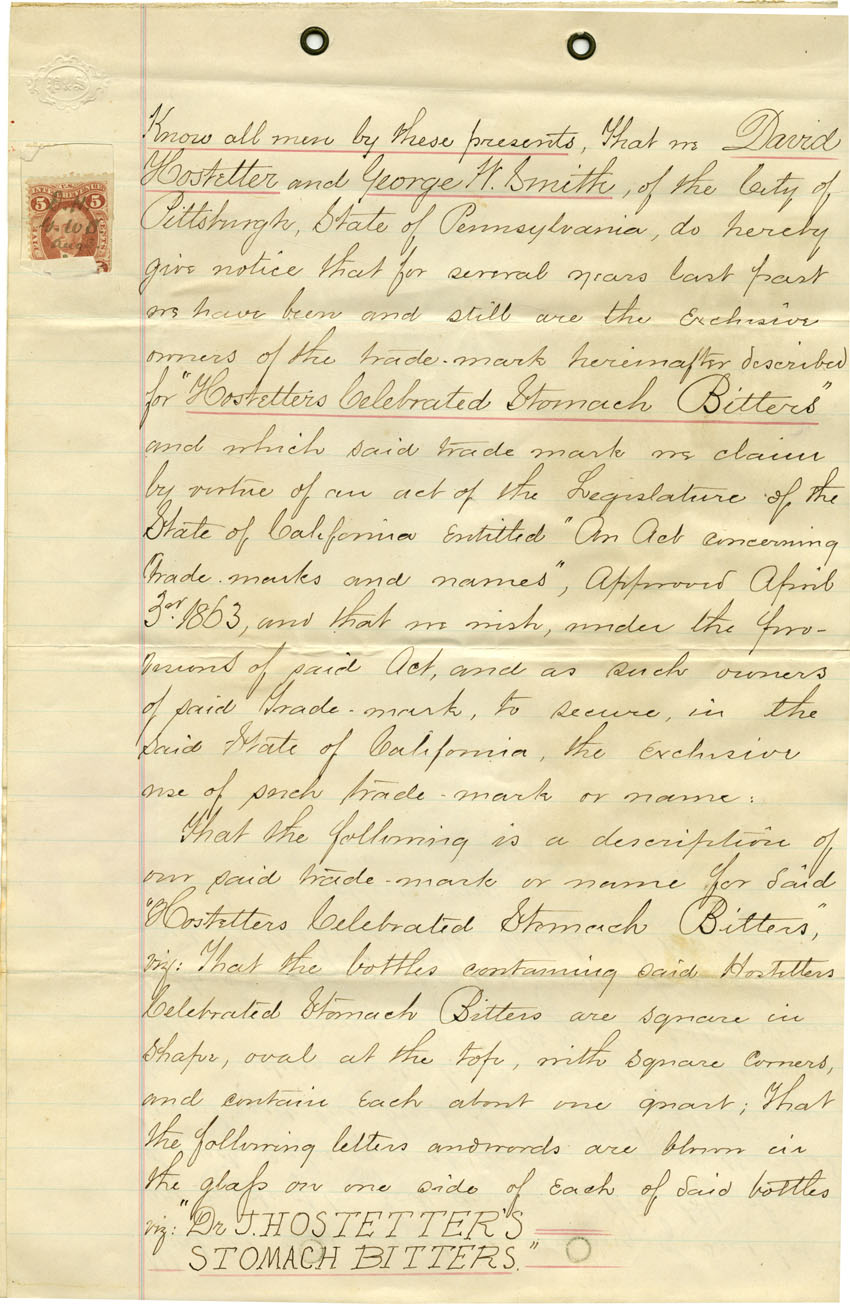 Know all men by these presents, That we David
Hostetter and George W. Smith, of the City of
Pittsburgh, State of Pennsylvania, do hereby
give notice that for several years last past
we have been and still are the exclusive
owners of the trade-mark hereinafter described
for "Hostetters Celebrated Stomach Bitters"
and which said trade mark we claim
by virtue of an act of the Legislature of the
State of California entitled "An Act concerning
trade-marks and names", Approved April
3rd 1863, and that we wish, under the pro-
visions of said Act, and as such owners
of said Trade-mark, to secure, in the
said State of California, the exclusive
use of such trade-mark or name:
That the following is a description of
our said trade-mark or name for said
"Hostetters Celebrated Stomach Bitters,"
viz: That the bottles containing said Hostetters
Celebrated Stomach Bitters are square in
shape, oval at the top, with square corners,
and contain each about one quart; That
the following letters and words are blown in
the glass on one side of each of said bottles
viz: "Dr J. HOSTETTER'S
STOMACH BITTERS."
INTER. REVENUE
5 5
FIVE CENTS